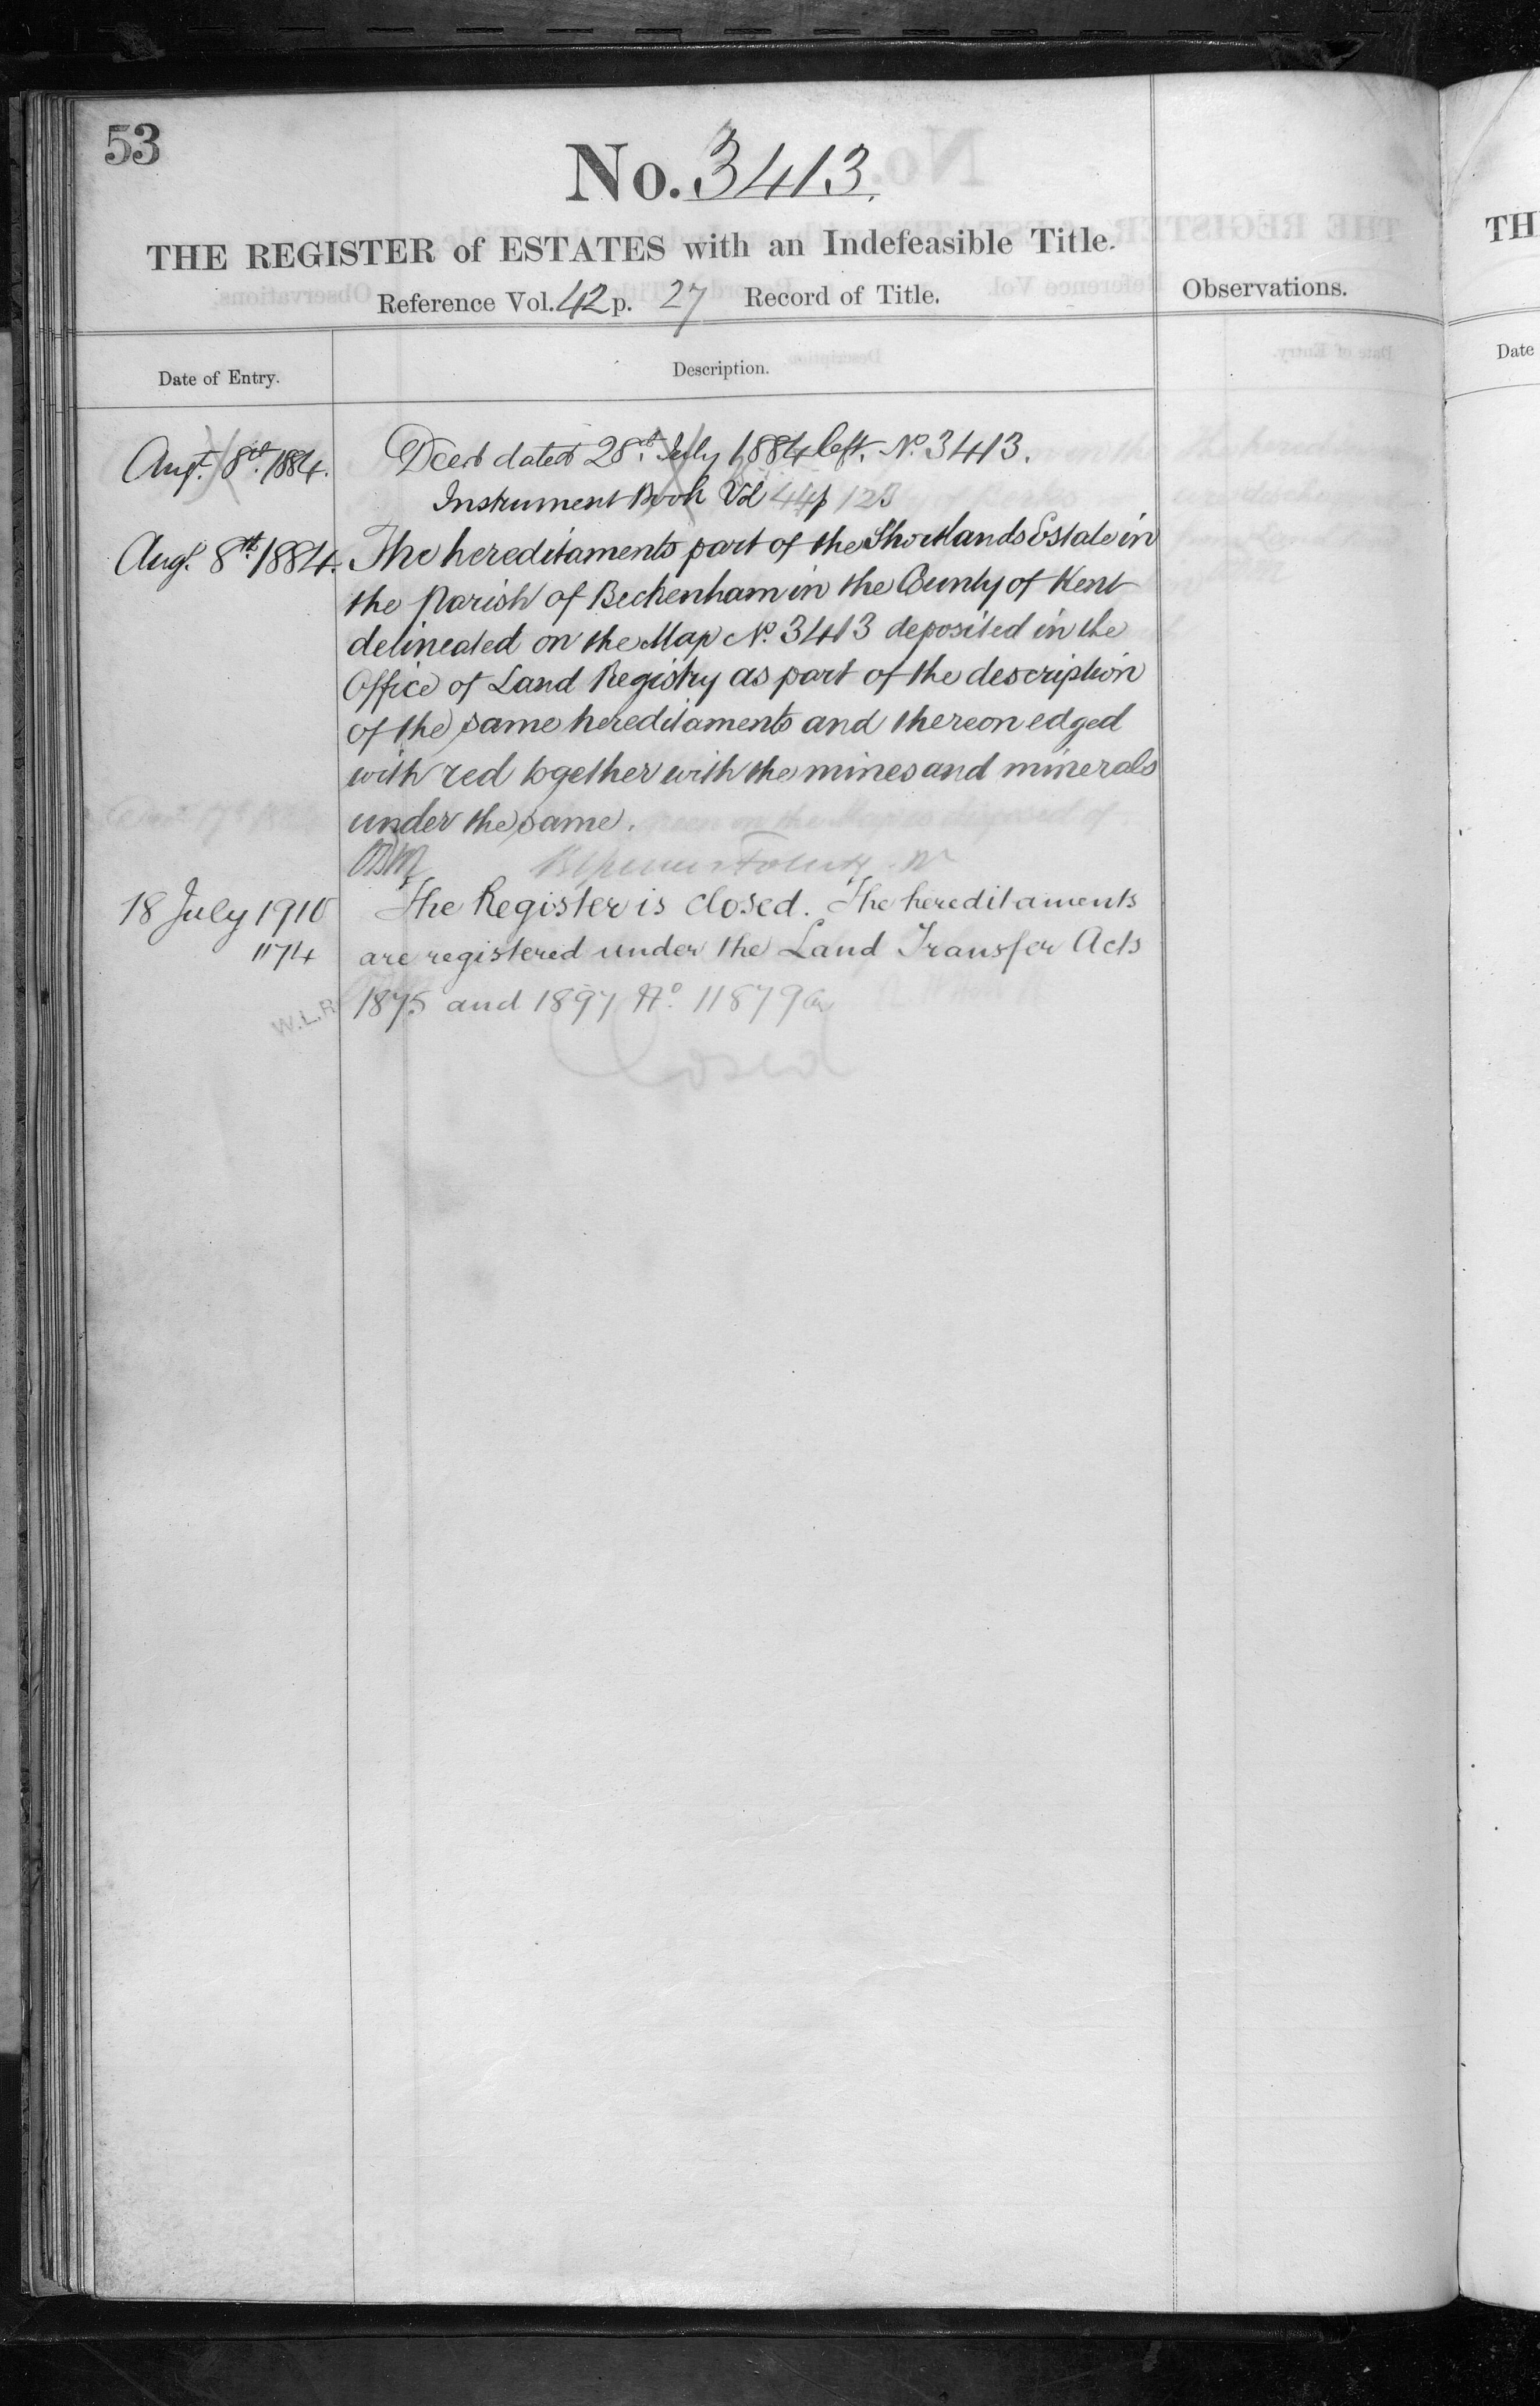 53
No. 3413.
THE REGISTER of ESTATES with an Indefeasible Title.
Reference Vol. 42 p. 27 Record of Title.
Observations.
Date of Entry.
Description.
Augt. 8th 1884.
Deed dated 28th July 1884 left. No. 3413.
Instrument Book Vol 44 p 123
Augt. 8th 1884.
The hereditaments part of the Shortlands Estate in
the Parish of Beckenham in the County of Kent
delineated on the Map No. 3413 deposited in the
Office of Land Registry as part of the description
of the same hereditaments and thereon edged
with red together with the mines and minerals
under the same.
18 July 1910
The Register is closed. The hereditaments
1174
are registered under the Land Transfer Acts
W.L.R.
1875 and 1897 No. 11879
Closed
TH
Date